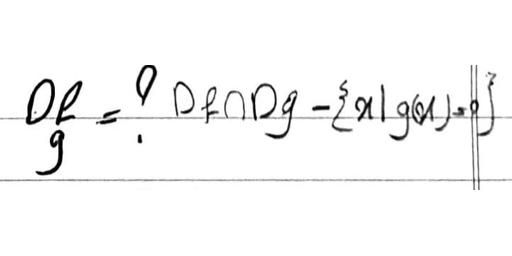 D f/g = ? Df∩Dg - {x | g(x) = 0}